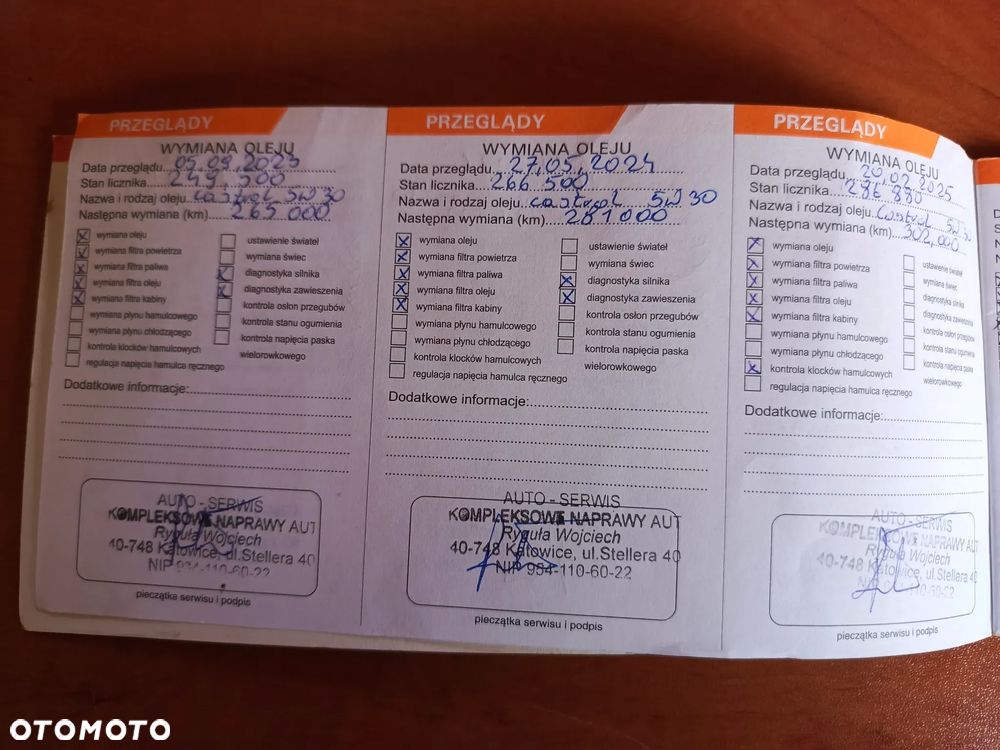 PRZEGLĄDY
WYMIANA OLEJU
Data przeglądu 05.09.2023
Stan licznika 249.500
Nazwa i rodzaj oleju castrol 5W30
Następna wymiana (km) 265 000
wymiana oleju
wymiana filtra powietrza
wymiana filtra paliwa
wymiana filtra oleju
wymiana filtra kabiny
wymiana płynu hamulcowego
wymiana płynu chłodzącego
kontrola klocków hamulcowych
regulacja napięcia hamulca ręcznego
ustawienie świateł
wymiana świec
diagnostyka silnika
diagnostyka zawieszenia
kontrola osłon przegubów
kontrola stanu ogumienia
kontrola napięcia paska
wielorowkowego
Dodatkowe informacje:
AUTO - SERWIS
KOMPLEKSOWE NAPRAWY AUT
Ryguła Wojciech
40-748 Katowice, ul.Stellera 40
NIP 954-110-60-22
pieczątka serwisu i podpis
PRZEGLĄDY
WYMIANA OLEJU
Data przeglądu 27.05.2024
Stan licznika 266 500
Nazwa i rodzaj oleju castrol 5W30
Następna wymiana (km) 281000
wymiana oleju
wymiana filtra powietrza
wymiana filtra paliwa
wymiana filtra oleju
wymiana filtra kabiny
wymiana płynu hamulcowego
wymiana płynu chłodzącego
kontrola klocków hamulcowych
regulacja napięcia hamulca ręcznego
ustawienie świateł
wymiana świec
diagnostyka silnika
diagnostyka zawieszenia
kontrola osłon przegubów
kontrola stanu ogumienia
kontrola napięcia paska
wielorowkowego
Dodatkowe informacje:
AUTO - SERWIS
KOMPLEKSOWE NAPRAWY AUT
Ryguła Wojciech
40-748 Katowice, ul.Stellera 40
NIP 954-110-60-22
pieczątka serwisu i podpis
PRZEGLĄDY
WYMIANA OLEJU
Data przeglądu 20.02.2025
Stan licznika 286 880
Nazwa i rodzaj oleju Castrol 5W30
Następna wymiana (km) 302,000
wymiana oleju
wymiana filtra powietrza
wymiana filtra paliwa
wymiana filtra oleju
wymiana filtra kabiny
wymiana płynu hamulcowego
wymiana płynu chłodzącego
kontrola klocków hamulcowych
regulacja napięcia hamulca ręcznego
ustawienie świateł
wymiana świec
diagnostyka silnika
diagnostyka zawieszenia
kontrola osłon przegubów
kontrola stanu ogumienia
kontrola napięcia paska
wielorowkowego
Dodatkowe informacje:
AUTO - SERWIS
KOMPLEKSOWE NAPRAWY AUT
Ryguła Wojciech
40-748 Katowice, ul.Stellera 40
110-60-22
pieczątka serwisu i podpis
OTOMOTO